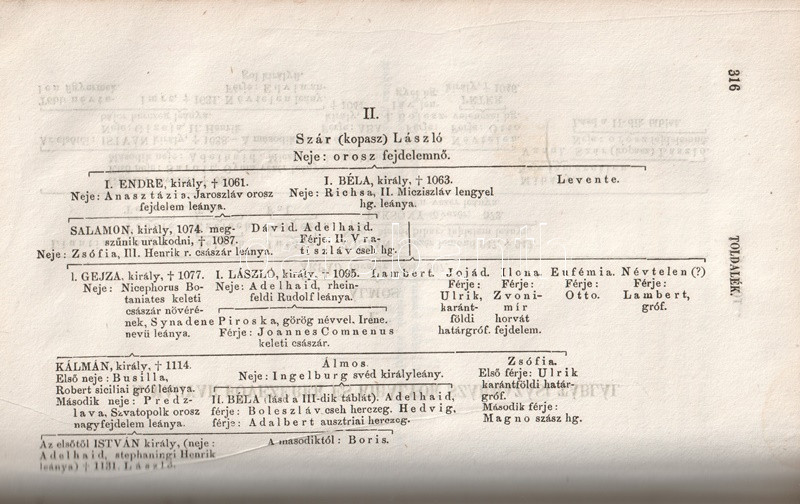 316
TOLDALÉK.
II.
Szár (kopasz) László
Neje: orosz fejdelemnő.
I. ENDRE, király, † 1061.
Neje: Anasztázia, Jaroszláv orosz
fejdelem leánya.
I. BÉLA, király, † 1063.
Neje: Richsa, II. Micziszláv lengyel
hg. leánya.
Levente.
SALAMON, király, 1074. meg-
szűnik uralkodni, † 1087.
Neje: Zsófia, III. Henrik r. császár leánya.
Dávid. Adelhaid.
Férje: II. Vra-
tiszláv cseh hg.
I. GEJZA, király, † 1077.
Neje: Nicephorus Bo-
taniates keleti
császár növéré-
nek, Synadene
nevü leánya.
I. LÁSZLÓ, király, † 1095.
Neje: Adelhaid, rhein-
feldi Rudolf leánya.
Piroska, görög névvel. Irene.
Férje: Joannes Comnenus
keleti császár.
Lambert.
Jojád.
Férje:
Ulrik,
karánt-
földi
határgróf.
Ilona.
Férje:
Zvoni-
mir
horvát
fejdelem.
Eufémia.
Férje:
Otto.
Névtelen (?)
Férje:
Lambert,
gróf.
KÁLMÁN, király, † 1114.
Első neje: Busilla,
Robert siciliai gróf leánya.
Második neje: Predz-
lava, Szvatopolk orosz
nagyfejdelem leánya.
Álmos.
Neje: Ingelburg svéd királyleány.
II. BÉLA (lásd a III-dik táblát). Adelhaid,
férje: Boleszláv cseh herczeg. Hedvig,
férje: Adalbert ausztriai herczeg.
Zsófia.
Első férje: Ulrik
karántföldi határ-
gróf.
Második férje:
Magno szász hg.
Az elsőtől ISTVÁN király, (neje:
Adelhaid, stephaningi Henrik
leánya) † 1131. László.
A másodiktól: Boris.